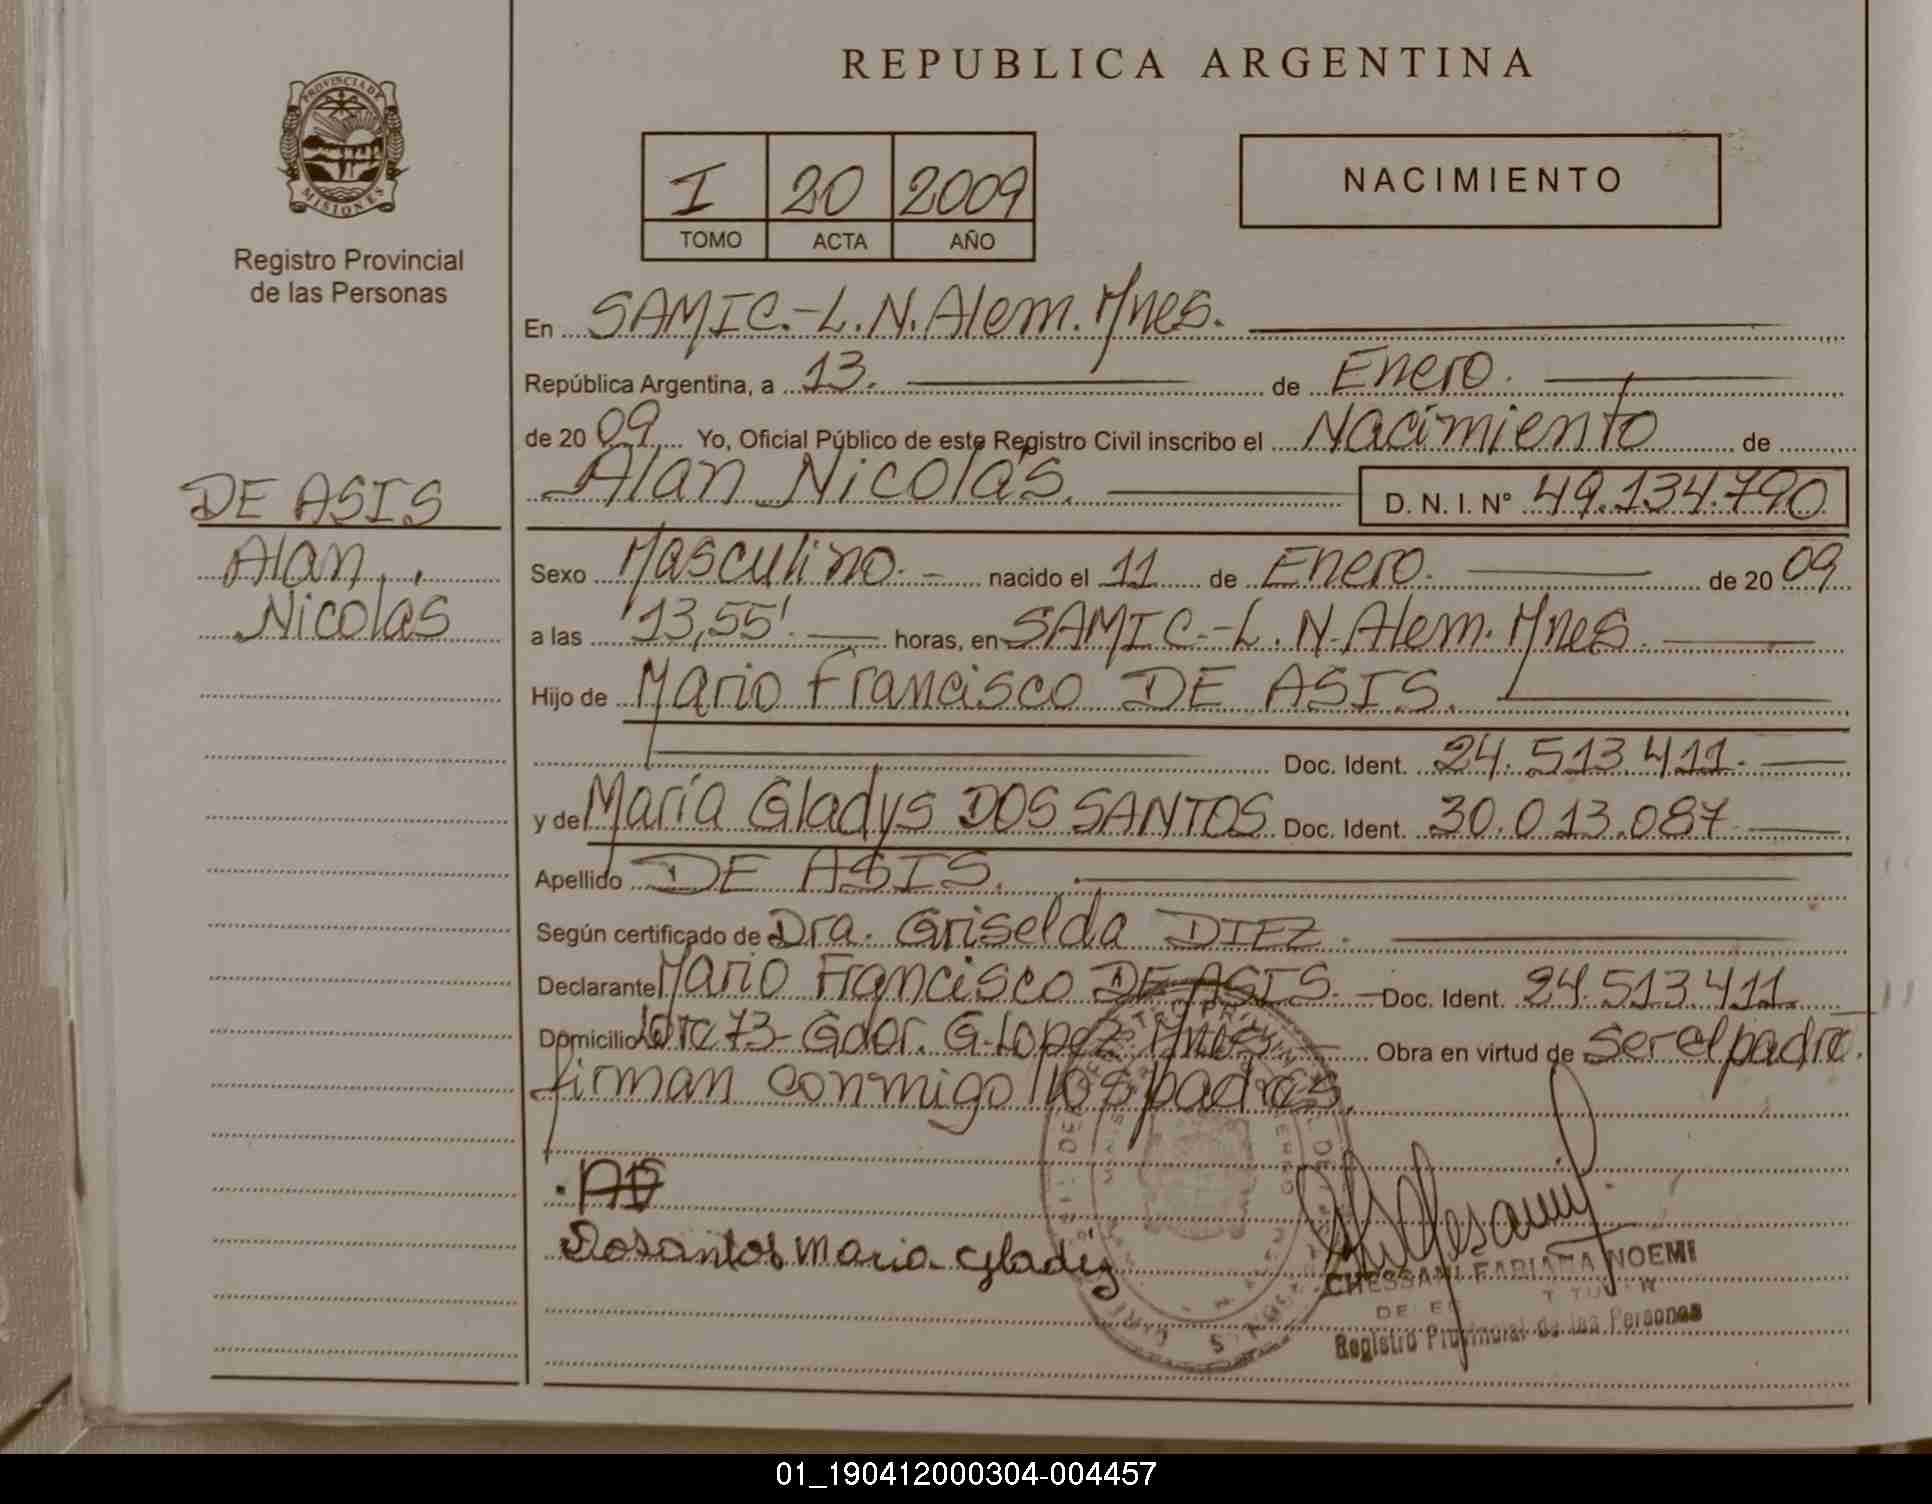 REPUBLICA ARGENTINA
PROVINCIA DE
MISIONES
Registro Provincial
de las Personas
I 20 2009
TOMO ACTA AÑO
NACIMIENTO
En SAMIC.-L.N.Alem.Mnes.
República Argentina, a 13. de Enero.
de 20 09 Yo, Oficial Público de este Registro Civil inscribo el Nacimiento de
Alan Nicolás. D. N. I. Nº 49.134.790
DE ASIS
Alan
Nicolas
Sexo Masculino.- nacido el 11 de Enero. de 20 09
a las 13,55'. horas, en SAMIC.-L.N.Alem.Mnes.
Hijo de Mario Francisco DE ASIS.
Doc. Ident. 24.513.411.
y de María Gladys DOS SANTOS Doc. Ident. 30.013.087
Apellido DE ASIS.
Según certificado de Dra. Griselda DIEZ.
Declarante Mario Francisco DE ASIS. Doc. Ident. 24.513.411.
Domicilio Lote 73-Gdor. G.Lopez Mnes Obra en virtud de Ser el padre.
firman conmigo los padres.
Dosantos Maria Gladis
CHESSANI FABIANA NOEMI
Registro Provincial de las Personas
01_190412000304-004457